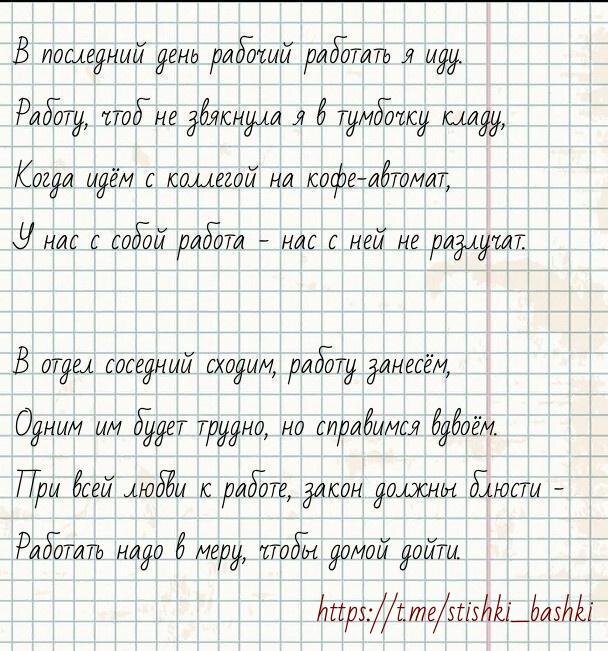 В последний день рабочий работать я иду.
Работу, чтоб не звякнула я в тумбочку кладу,
Когда идём с коллегой на кофе-автомат,
У нас с собой работа - нас с ней не разлучат.
В отдел соседний сходим, работу занесём,
Одним им будет трудно, но справимся вдвоём.
При всей любви к работе, закон должны блюсти -
Работать надо в меру, чтобы домой дойти.
https://t.me/stishki_bashki